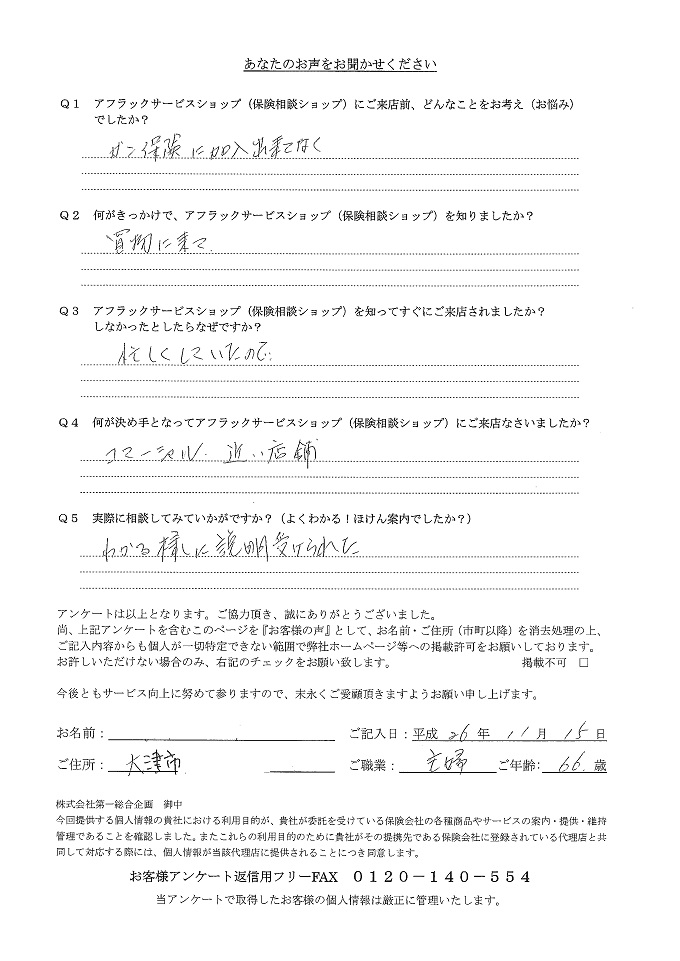 あなたのお声をお聞かせください
Q1 アフラックサービスショップ（保険相談ショップ）にご来店前、どんなことをお考え（お悩み）
でしたか？
ガン保険に加入出来てなく
Q2 何がきっかけで、アフラックサービスショップ（保険相談ショップ）を知りましたか？
買物に来て.
Q3 アフラックサービスショップ（保険相談ショップ）を知ってすぐにご来店されましたか？
しなかったとしたらなぜですか？
忙しくしていたので.
Q4 何が決め手となってアフラックサービスショップ（保険相談ショップ）にご来店なさいましたか？
コマーシャル. 近い店舗
Q5 実際に相談してみていかがですか？（よくわかる！ほけん案内でしたか？）
わかる様しに説明受けられた
アンケートは以上となります。ご協力頂き、誠にありがとうございました。
尚、上記アンケートを含むこのページを『お客様の声』として、お名前・ご住所（市町以降）を消去処理の上、
ご記入内容からも個人が一切特定できない範囲で弊社ホームページ等への掲載許可をお願いしております。
お許しいただけない場合のみ、右記のチェックをお願い致します。 掲載不可 □
今後ともサービス向上に努めて参りますので、末永くご愛顧頂きますようお願い申し上げます。
お名前： ご記入日：平成 26 年 11 月 15 日
ご住所： 大津市 ご職業： 主婦 ご年齢： 66 歳
株式会社第一総合企画 御中
今回提供する個人情報の貴社における利用目的が、貴社が委託を受けている保険会社の各種商品やサービスの案内・提供・維持
管理であることを確認しました。またこれらの利用目的のために貴社がその提携先である保険会社に登録されている代理店と共
同して対応する際には、個人情報が当該代理店に提供されることにつき同意します。
お客様アンケート返信用フリーFAX 0120－140－554
当アンケートで取得したお客様の個人情報は厳正に管理いたします。